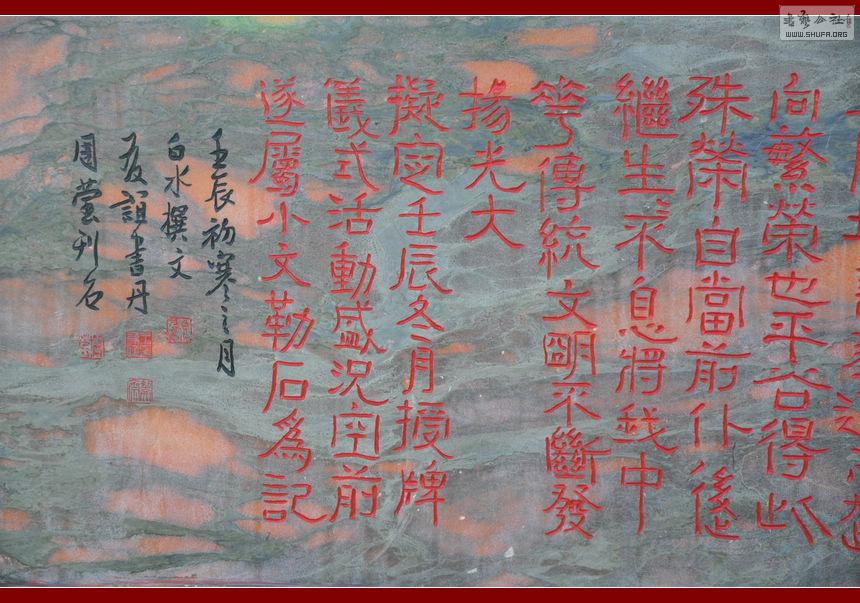 向繁榮也平谷得此
殊榮自當前仆後
繼生不息將我中
華傳統文明不斷發
揚光大
擬定壬辰冬月授牌
儀式活動盛況空前
遂屬小文勒石為記
壬辰初寒之月
白水撰文
書丹
周瑩刊石
書藝公社
WWW.SHUFA.ORG